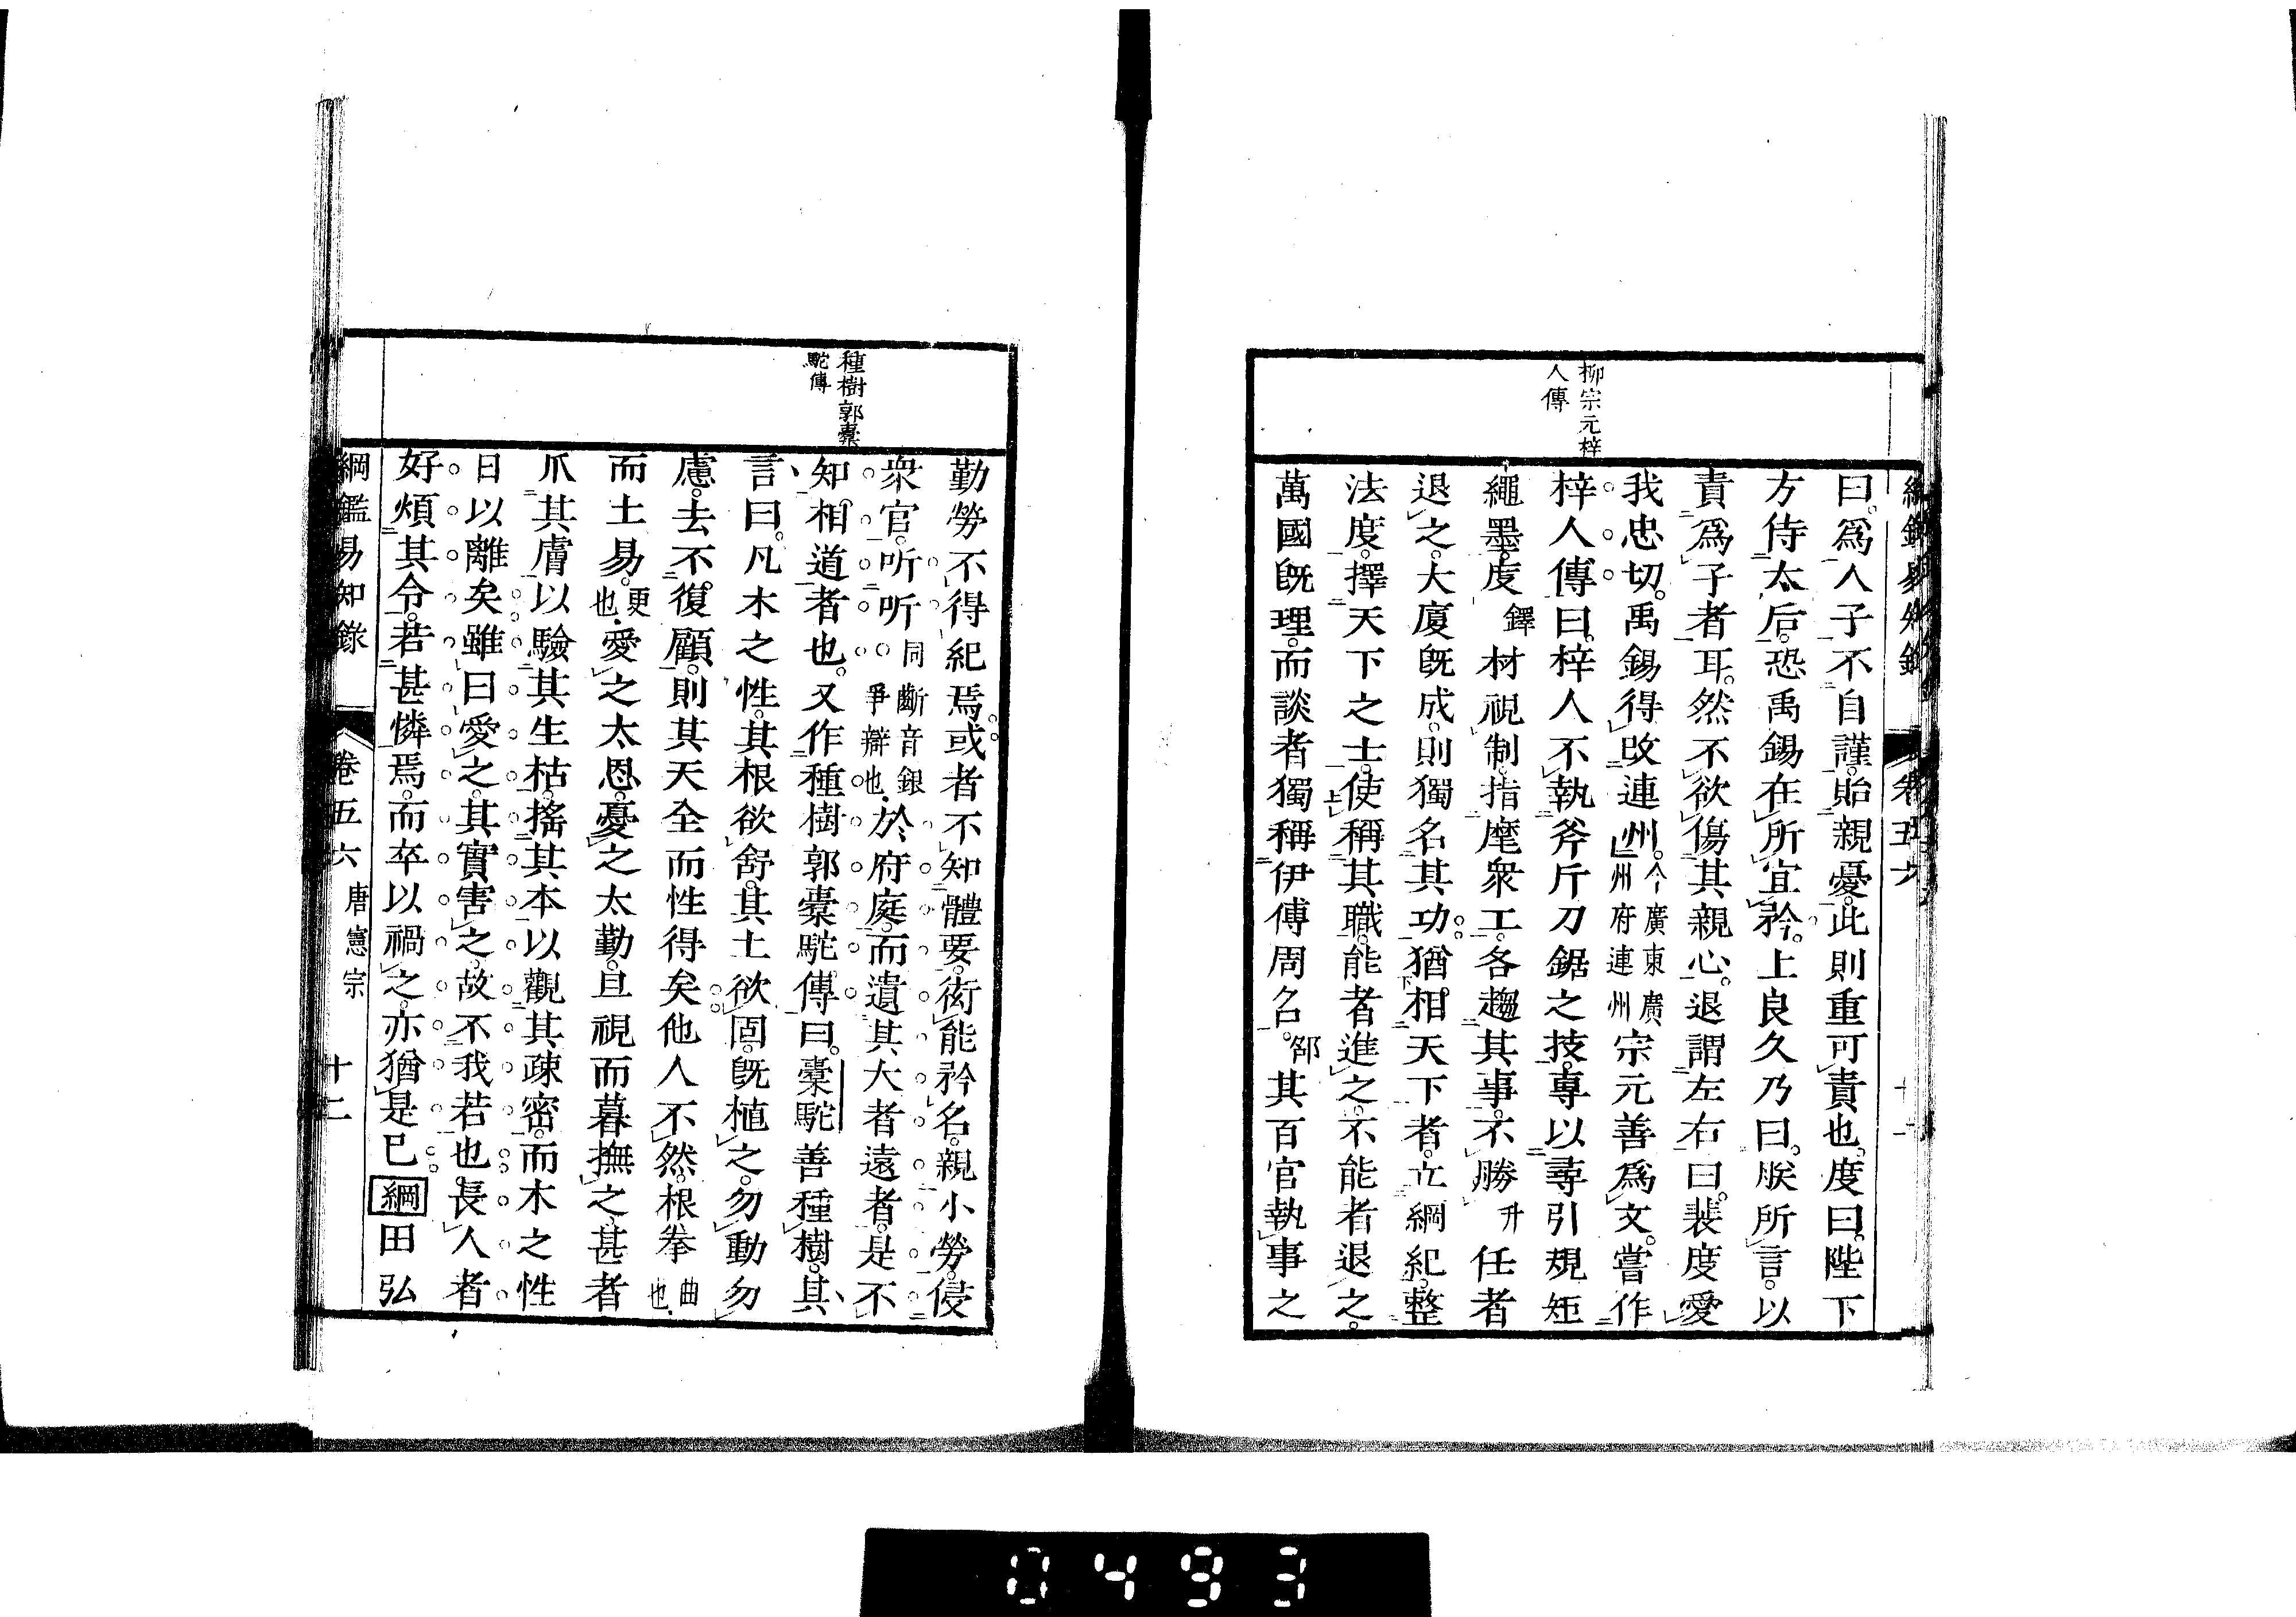 柳宗元梓
人傳
曰。爲人子不自謹。貽親憂。此則重可責也。度曰。陛下
方侍太后。恐禹錫在所宜矜。上良久乃曰。朕所言。以
責爲子者耳。然不欲傷其親心。退謂左右曰。裴度愛
我忠切。禹錫得改連州。今廣東廣州府連州宗元善爲文。嘗作
梓人傳曰。梓人不執斧斤刀鋸之技。專以尋引規矩
繩墨。度鐸材視制。指麾衆工。各趨其事。不勝升任者
退之。大廈旣成。則獨名其功。猶相天下者。立綱紀。整
法度。擇天下之士。使稱其職。能者進之。不能者退之。
萬國旣理。而談者獨稱伊傅周召。邵其百官執事之
種樹郭橐
駝傳
勤勞不得紀焉。或者不知體要。衒能矜名。親小勞。侵
衆官。听听同齗音銀爭辯也。於府庭。而遺其大者遠者。是不
知相道者也。又作種樹郭橐駝傳曰。橐駝善種樹。其
言曰。凡木之性。其根欲舒。其土欲固。旣植之。勿動勿
慮。去不復顧。則其天全而性得矣。他人不然。根拳曲也。
而土易。更也。愛之太恩。憂之太勤。旦視而暮撫之。甚者
爪其膚以驗其生枯。搖其本以觀其疎密。而木之性
日以離矣。雖曰愛之。其實害之。故不我若也。長人者
好煩其令。若甚憐焉。而卒以禍之。亦猶是已 綱 田弘
綱鑑易知錄 卷五六 唐憲宗 十二
0493